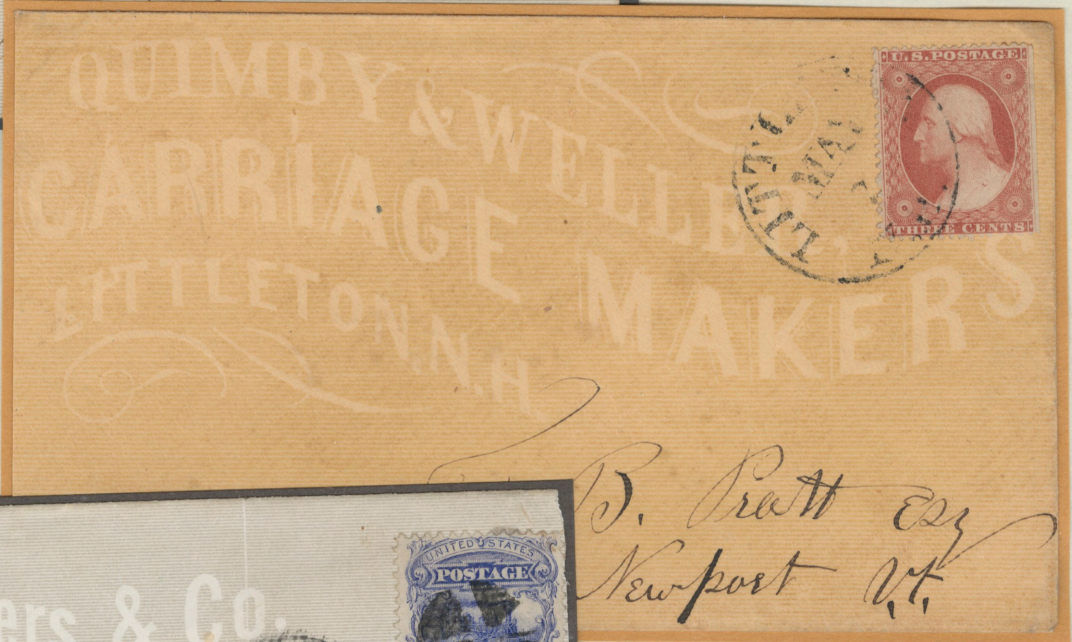 QUIMBY & WELLER,
CARRIAGE MAKERS
LITTLETON, N.H.
U.S. POSTAGE
THREE CENTS
MAY
B. Pratt Esq
Newport Vt.
UNITED STATES
POSTAGE
ers & Co.